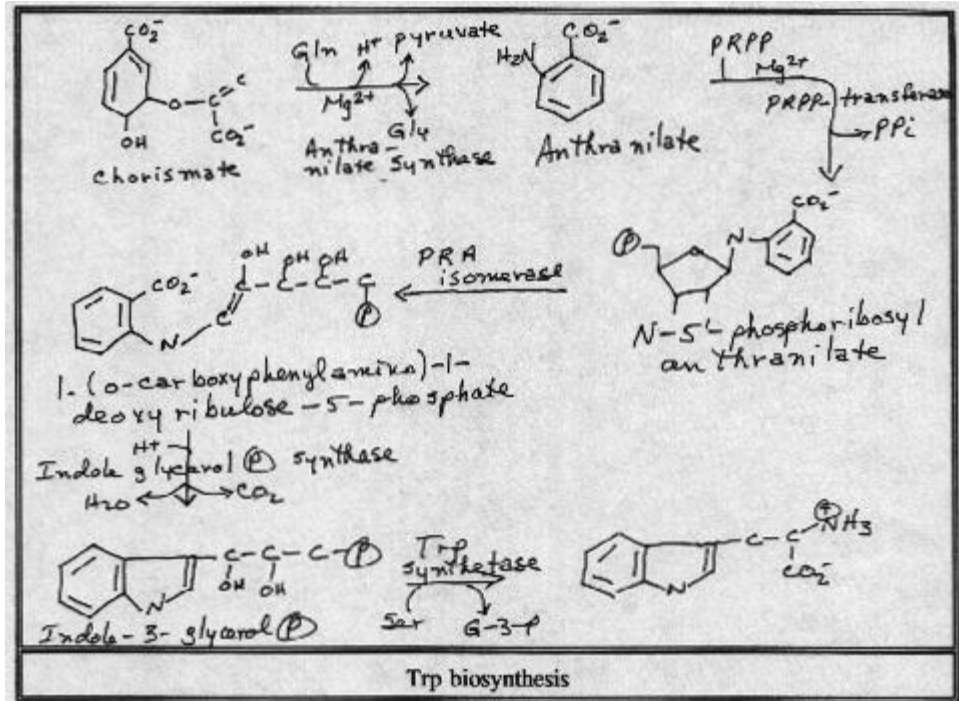 CO2-
Gln H+ pyruvate
Mg2+
Gly
Anthra-
nilate synthase
O C C
CO2-
OH
chorismate
CO2-
H2N
Anthranilate
PRPP
Mg2+
PRPP transferase
PPi
CO2-
P N
N-5'-phosphoribosyl
anthranilate
PRA
isomerase
OH OH OH
CO2- C C-C-C-C
N P
1-(o-carboxyphenylamino)-1-
deoxy ribulose-5-phosphate
H+
Indole glycerol P synthase
H2O CO2
C-C-C-P
OH OH
N
Indole-3-glycerol P
Trp
synthetase
Ser G-3-P
C-C-NH3
+
CO2-
N
Trp biosynthesis